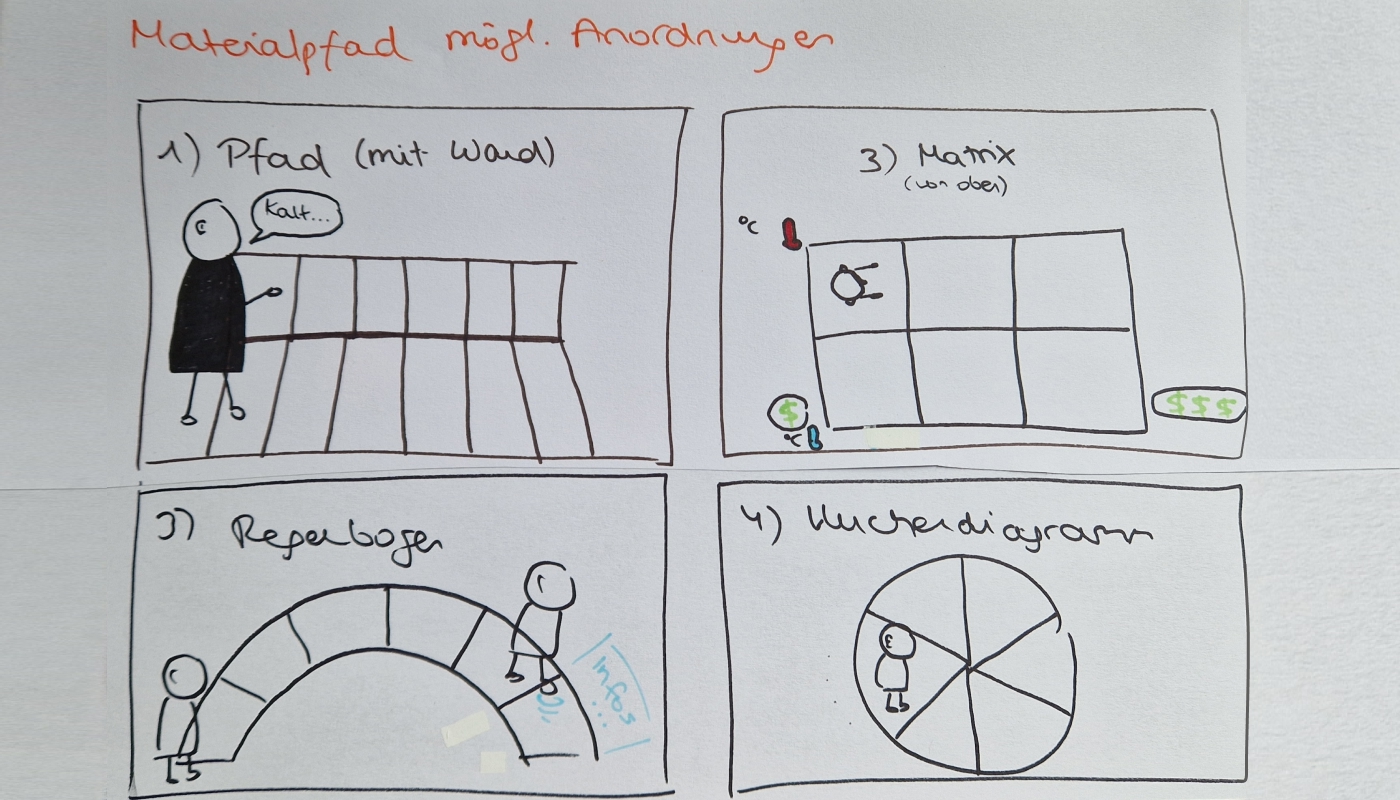 Materialpfad mögl. Anordnungen
1) Pfad (mit Wand)
Kalt...
3) Matrix
(von oben)
°C
$
$$$
°C
3) Regenbogen
Infos
...
4) Kuchendiagramm